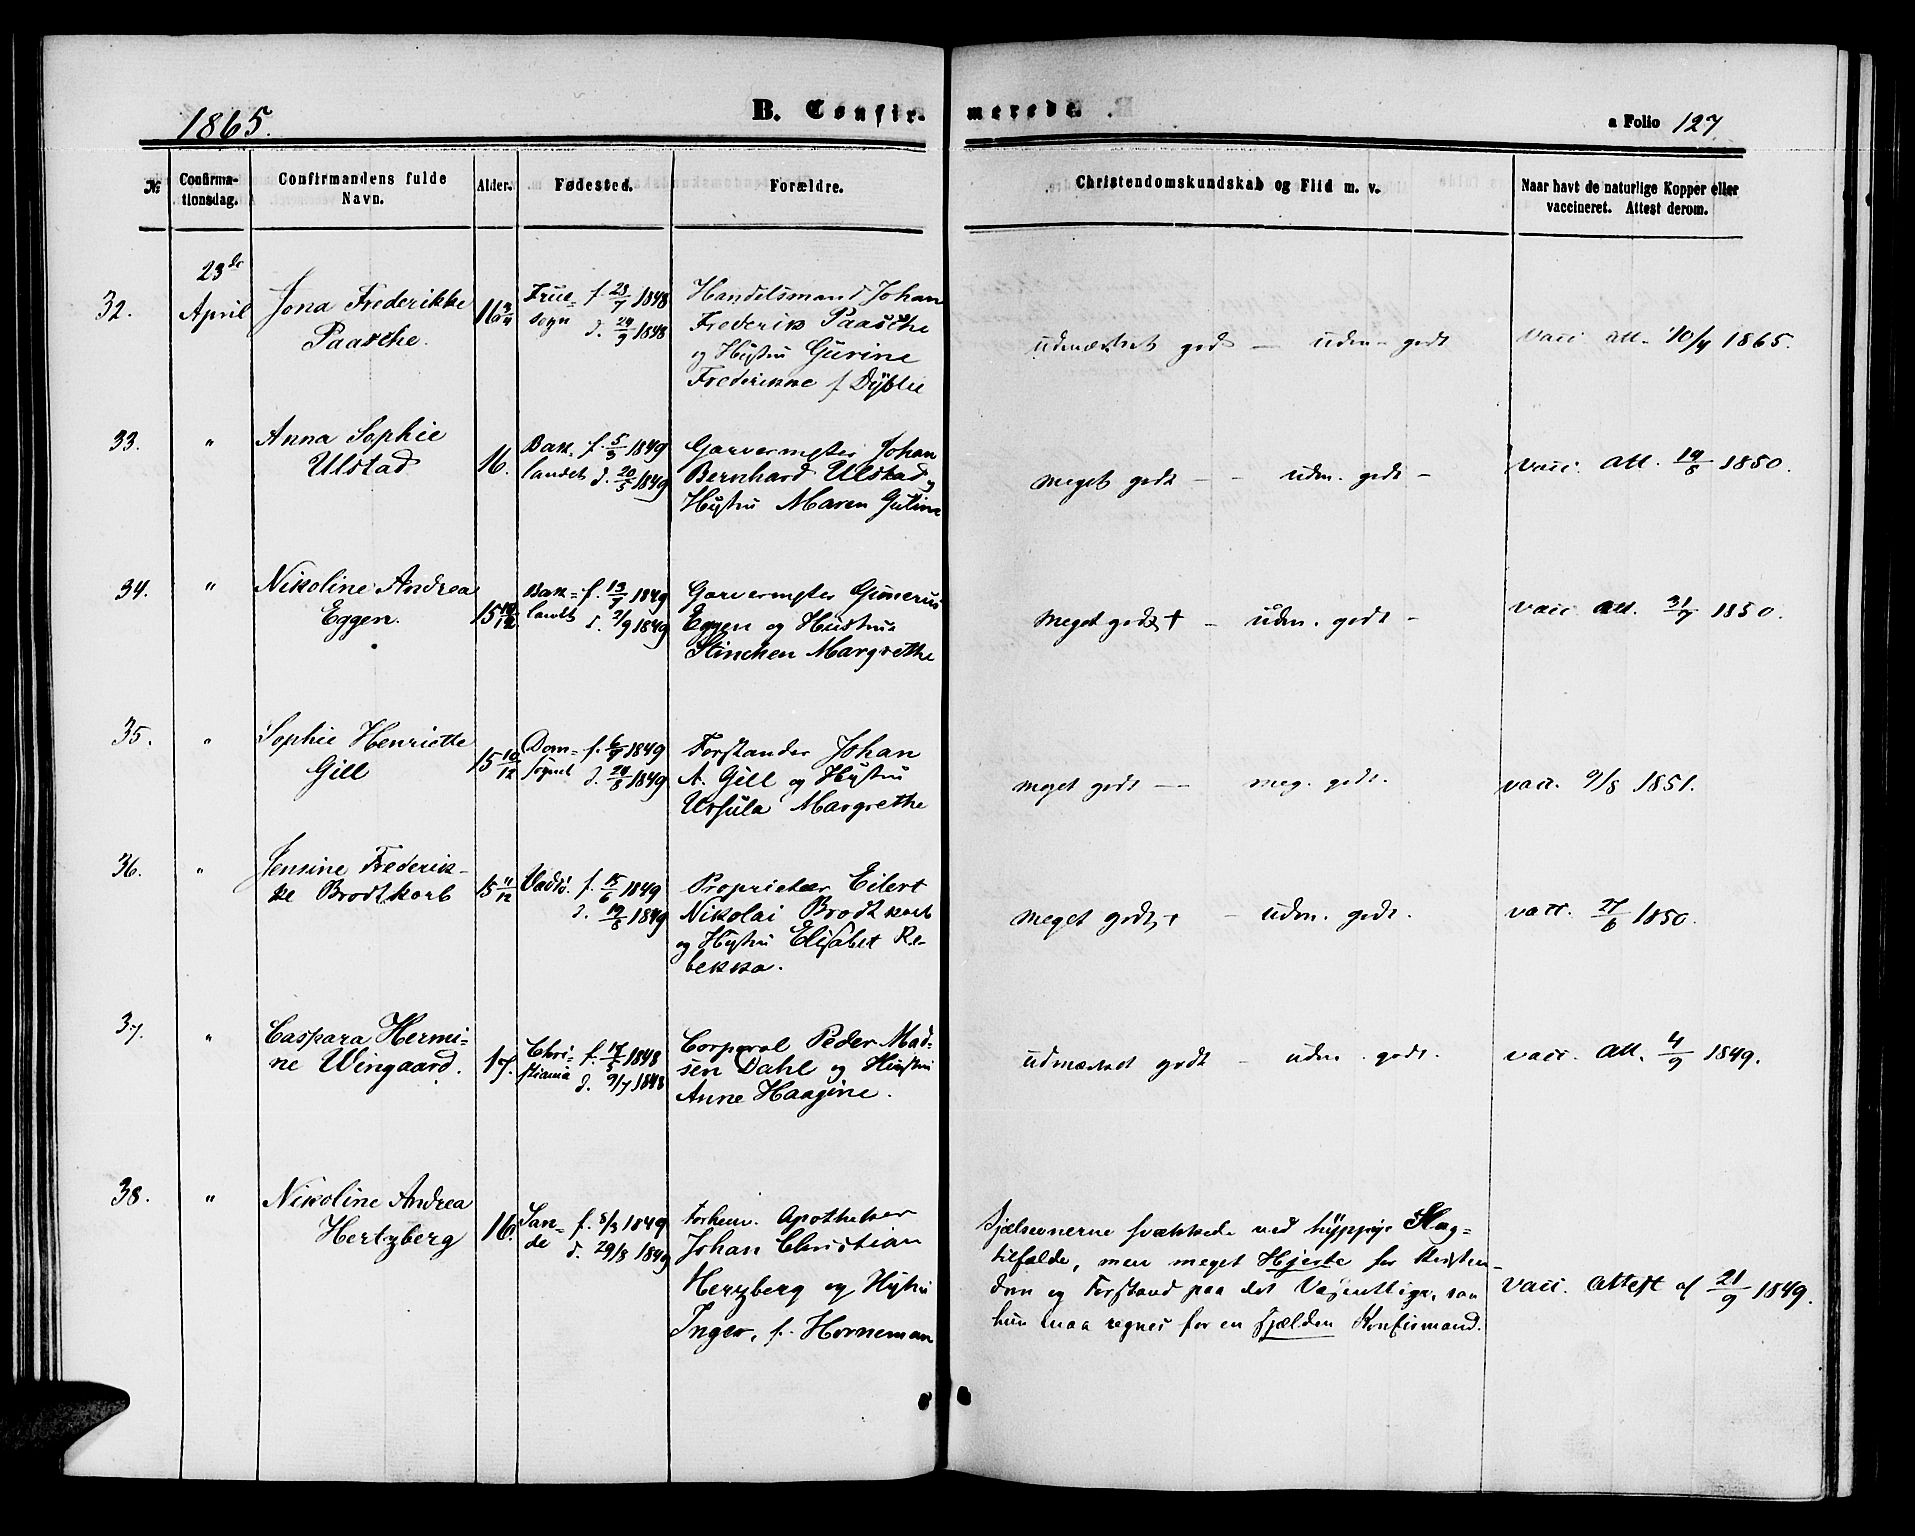 1865.
B. Confir- merede.
a Folio 127.
№ Confirma-tionsdag. Confirmandens fulde Navn. Alder. Fødested. Forældre. Christendomskundskab og Flid m. v. Naar havt de naturlige Kopper eller vaccineret. Attest derom.
32. 23de April
Jona Frederikke
Paasche.
16 3/4
Frue- f. 23/7 1848
sogn d. 24/9 1848
Handelsmand Johan
Frederik Paasche
og Hystru Gurine
f.
udmærket godt — udm. godt
vacc. att. 10/4 1865.
33. "
Anna Sophie
Ulstad
16.
Bak- f. 5/3 1849
landet d. 20/5 1849
Garvermester Johan
Bernhard Ulstad og
Hystru Maren
meget godt - - udm. godt -
vacc. att. 19/8 1850.
34. "
Nikoline Andrea
Eggen.
15 10/12
Bak- f. 13/7 1849
landt d. 2/9 1849
Garvermester Gunerius
Eggen og Hustru
Stinchen Margrethe
meget godt + - udm. godt -
vacc. att. 31/7 1850.
35. "
Sophie Henriette
Gill
15 10/12
Dom- f. 6/7 1849
sognet d. 24/8 1849
Forstander Johan
A. Gill og Hystru
Ursula Margrethe
meget godt — meg. godt.
vacc. 9/8 1851.
36. "
Jensine Frederik-
ke Brodtkorb
15 11/12
Vadsö. f. 15/6 1849
d. 19/8 1849
Proprietær Eilert
Nikolai Brodtkorb
og Hystru Elisabet Re-
bekka.
meget godt + - udm. godt.
vacc. 27/6 1850.
37. "
Caspara Hermi-
ne Wingaard.
17.
Chri- f. 1848
stiania d. 9/7 1848
Corporal Peder Mad-
sen Dahl og Hustru
Anne Haagine.
udmærket godt - udm. godt.
vacc. att. 4/9 1849.
38. "
Nikoline Andrea
Hertzberg
16.
San- f. 8/3 1849
de d. 29/8 1849
forhenv. Apotheker
Johan Christian
Hertzberg og Hystru
Inger, f. Horneman
Sjælsevnerne svækkede ved hyppige Slag-
tilfælde, men meget Hjerte for Kristen-
dom og Forstand paa det Væsentlige, saa
hun maa regnes for en sjælden Konfirmand.
vacc. attest af 21/9 1849.